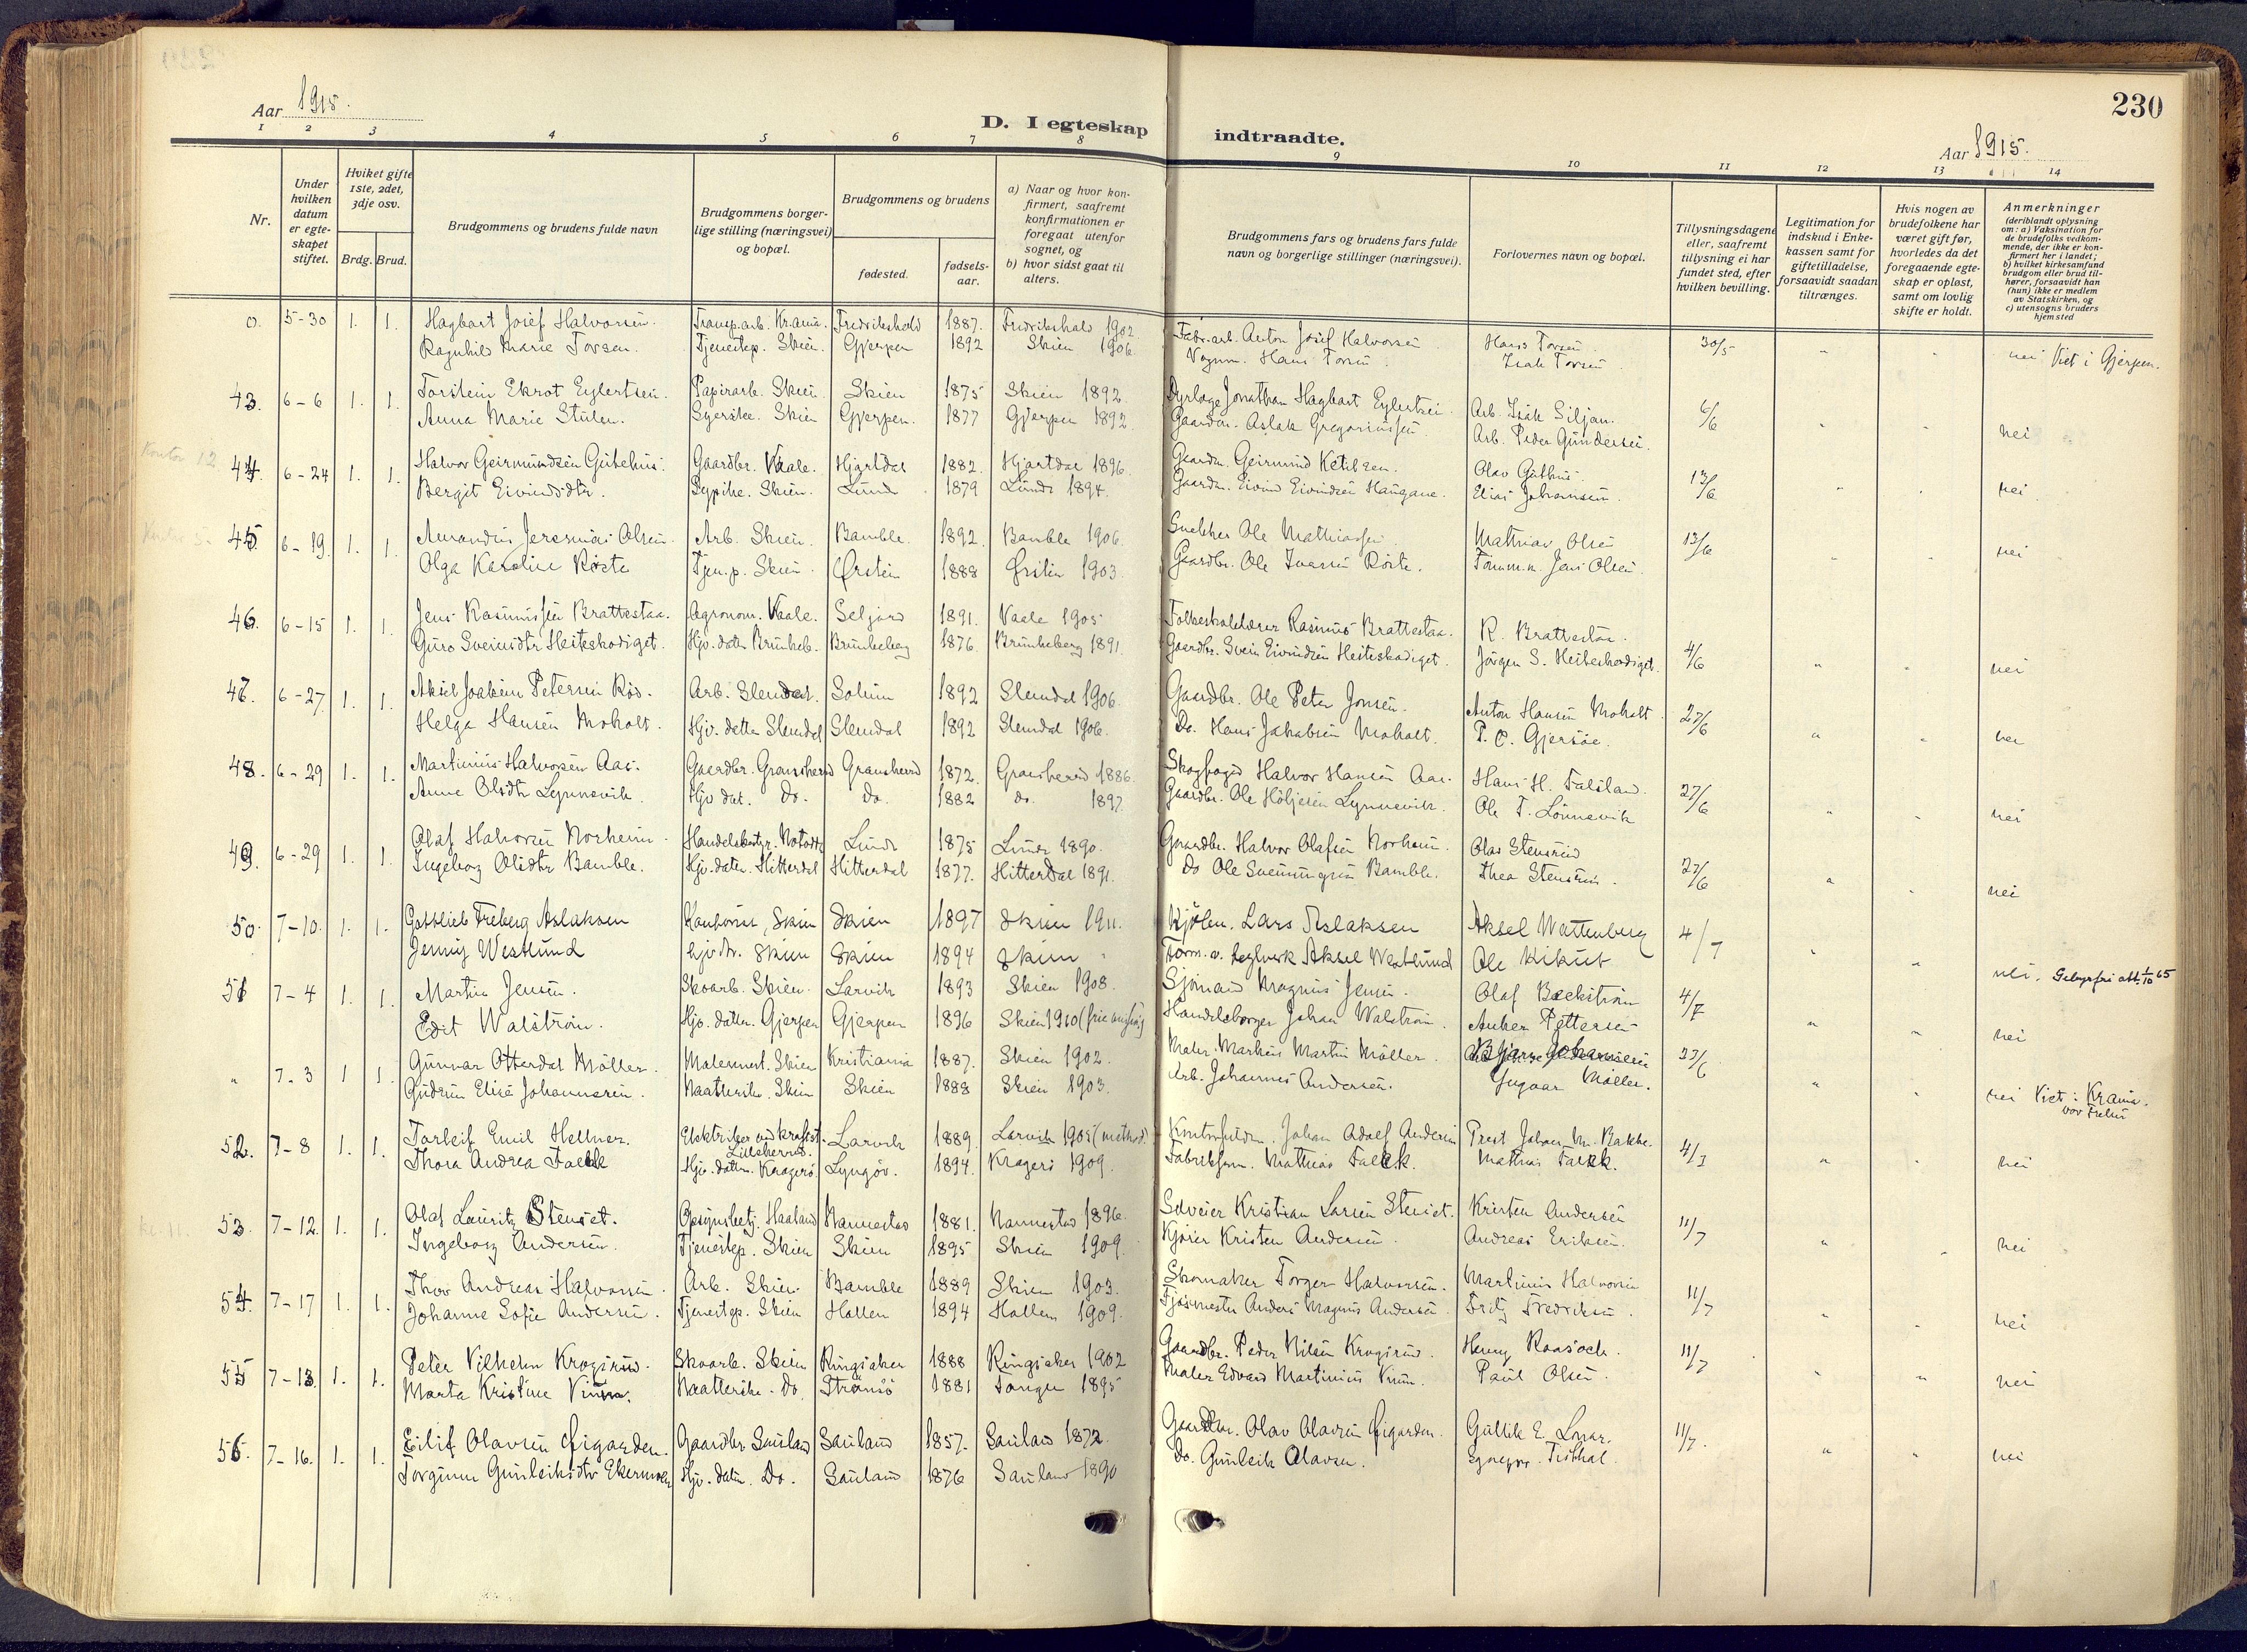 Aar 1915.
D. I egteskap indtraadte.
230
Aar 1915.
1 2 3 4 5 6 7 8 9 10 11 12 13 14
Nr.
Under hvilken datum er egteskapet stiftet.
Hviket gifte 1ste, 2det, 3dje osv.
Brdg. Brud.
Brudgommens og brudens fulde navn
Brudgommens borgerlige stilling (næringsvei) og bopæl.
Brudgommens og brudens
fødested.
fødselsaar.
a) Naar og hvor konfirmert, saafremt konfirmationen er foregaat utenfor sognet, og
b) hvor sidst gaat til alters.
Brudgommens fars og brudens fars fulde navn og borgerlige stillinger (næringsvei).
Forlovernes navn og bopæl.
Tillysningsdagene eller, saafremt tillysning ei har fundet sted, efter hvilken bevilling.
Legitimation for indskud i Enkekassen samt for giftetilladelse, forsaavidt saadan tiltrænges.
Hvis nogen av brudefolkene har været gift før, hvorledes da det foregaaende egteskap er opløst, samt om lovlig skifte er holdt.
Anmerkninger (deriblandt oplysning om: a) Vaksination for de brudefolks vedkommende, der ikke er konfirmert her i landet; b) hvilket kirkesamfund brudgom eller brud tilhører, forsaavidt han (hun) ikke er medlem av Statskirken, og c) utensogns bruders hjemsted
0. 5-30 1. 1. Hagbart Josef Halvorsen. Transp.arb. Krania. Fredrikshald 1887. Fredrikshald 1902 Fabr.arb. Anton Josef Halvorsen Hans Torsen 30/5 " " nei Viet i Gjerpen.
Ragnhild Marie Torsen. Tjenestep. Skien. Gjerpen 1892 Skien 1906. Vognm. Hans Torsen. Isak Torsen
43. 6-6 1. 1. Torstein Ekrot Eylertsen. Papirarb. Skien. Skien 1875 Skien 1892. Dyrlæge Jonathan Hagbart Eylertsen. Arb. Isak Siljan. 6/6 " " nei
Anna Marie Stulen. Syerske. Skien Gjerpen. 1877 Gjerpen 1892. Gaardm. Aslak Gregoriussen. Arb. Peder Gundersen.
44. 6-24 1. 1. Halvor Geirmundsen Gutehus. Gaardbr. Vaale. Hjartdal 1882. Hjartdal 1896. Gaardm. Geirmund Ketilsen. Olav Guthus. 13/6 " " nei
Bergit Eivindsdtr. Sypike. Skien. Lunde 1879 Lunde 1894. Gaardm. Eivind Eivindsen Haugane. Elias Johansen.
45. 6-19. 1. 1. Amandus Jeremias Olsen. Arb. Skien. Bamble. 1892. Bamble 1906. Snekker Ole Mathiassen. Mathias Olsen 13/6 " " nei
Olga Karoline Røste Tjen.p. Skien Ørsten 1888 Ørsten 1903. Gaardbr. Ole Iversen Røste. Tømm.m. Jens Olsen.
46. 6-15 1. 1. Jens Rasmussen Brattestaa. Agronom. Vaale. Seljord 1891. Vaale 1905 Folkeskolelærer Rasmus Brattestaa. R. Brattestaa. 4/6 " " nei
Guro Sveinsdtr Heitskodiget. Hjv. datter Brunkeb. Brunkeberg 1876. Brunkeberg 1891. Gaardbr. Svein Eivindsen Heiteskodiget. Jørgen S. Heiteskodiget.
47. 6-27. 1. 1. Aksel Joakim Petersen Rød. Arb. Slemdal. Solum 1892 Slemdal 1906. Gaardbr. Ole Peter Jonsen. Anton Hansen Moholt. 27/6 " " nei
Helga Hansen Moholt. Hjv. datter Slemdal Slemdal 1892 Slemdal 1906. Do. Hans Jakobsen Moholt. P. C. Gjersøe.
48. 6-29 1. 1. Martinius Halvorsen Aas. Gaardbr. Gransherred Gransherred 1872. Gransherred 1886. Skogfoged Halvor Hansen Aas. Hans H. Falsland. 27/6 " " nei
Anne Olsdtr Lynnevik. Hjv dat. do. do. 1882 do. 1897. Gaardbr. Ole Höljesen Lynnevik. Ole T. Lönnevik
49. 6-29 1. 1. Olaf Halvorsen Norheim. Handelsbestyr. Notodd Lunde 1875 Lunde 1890. Gaardbr. Halvor Olafsen Norheim. Olav Stensrud 27/6 " " nei
Ingeborg Olsdtr Bamble. Hjv. datter. Hitterdal Hitterdal 1877. Hitterdal 1891. Do Ole Sveinungsen Bamble. Thea Stensrud.
50. 7-10. 1. 1. Gottlieb Freberg Aslaksen Kontorist, Skien Skien 1897 Skien 1911. Kjölen. Lars Aslaksen Aksel Wattenberg 4/7 " " nei.
Jenny Westlund hjv dtr. Skien Skien 1894 Skien " Form. v. teglverk Aksel Westlund Ole Kikut Gebyrfri att. 1/10 65
51 7-4 1. 1. Martin Jensen. Skoarb. Skien. Larvik 1893 Skien 1908. Sjömand Magnus Jensen. Olaf Backström 4/7 " " nei
Edit Walström. Hjv. datter. Gjerpen Gjerpen 1896 Skien 1910 (frie misjon) Handelsborger Johan Walström. Anker Pettersen
" 7-3 1 1 Gunnar Otterdal Möller. Malermest. Skien Kristiania 1887. Skien 1902. Maler. Markus Martin Möller. Johannesen 27/6 " " nei Viet i Krania. vor Frelser
Gudrun Elise Johannesen. Maatterske. Skien Skien 1888 Skien 1903. Arb. Johannes Andersen. Yngvar Möller.
52. 7-8 1. 1. Torleif Emil Hellner. Elektriker ved kraftst. Lilleherred. Larvik 1889. Larvik 1905 (method.) Kontorfuldm. Johan Adolf Andersen Prest Johan M. Bakke. 4/7 " " nei
Thora Andrea Falck Hjv. datter. Kragerö. Lyngör. 1894. Kragerö 1909. Fabrikform. Mathias Falck. Mathias Falck.
53. 7-12. 1. 1. Olaf Lauritz Stenset. Opsynsbetj. Haaland Nannestad 1881. Nannestad 1896. Selveier Kristian Larsen Stenset. Kristen Andersen 11/7 " " nei
Ingeborg Andersen. Tjenestep. Skien Skien 1895 Skien 1909. Kjörer Kristen Andersen. Andreas Eriksen.
54. 7-17 1. 1. Thor Andreas Halvorsen. Arb. Skien. Bamble 1889 Skien 1903. Skomaker Torger Halvorsen. Martinius Halvorsen 11/7 " " nei
Johanne Sofie Andersen. Tjenestep. Skien Hollen 1894 Hollen 1909. Fjösmester Anders Magnus Andersen. Fritz Fredriksen.
55 7-13. 1. 1. Peter Vilhelm Krogsrud. Skoarb. Skien Ringsaker 1888 Ringsaker 1902 Gaardbr. Peder Nilsen Krogsrud. Henry Raasoch. 11/7 " " nei
Marta Kristine Vium. Maatterske. Do. Strömsö 1881 Tangen 1895 Maler Edvard Martinius Vium. Paul Olsen.
56. 7-16. 1. 1. Eilif Olavsen Øigarden. Gaardbr. Sauland Sauland 1857. Sauland 1872. Gaardbr. Olav Olavsen Øigarden. Gullik E. Lonar. 11/7. " " nei
Torgunn Gunleiksdtr Ekermoen Hjv. datter. Do. Sauland 1876 Sauland 1890 Do. Gunleik Olavsen.